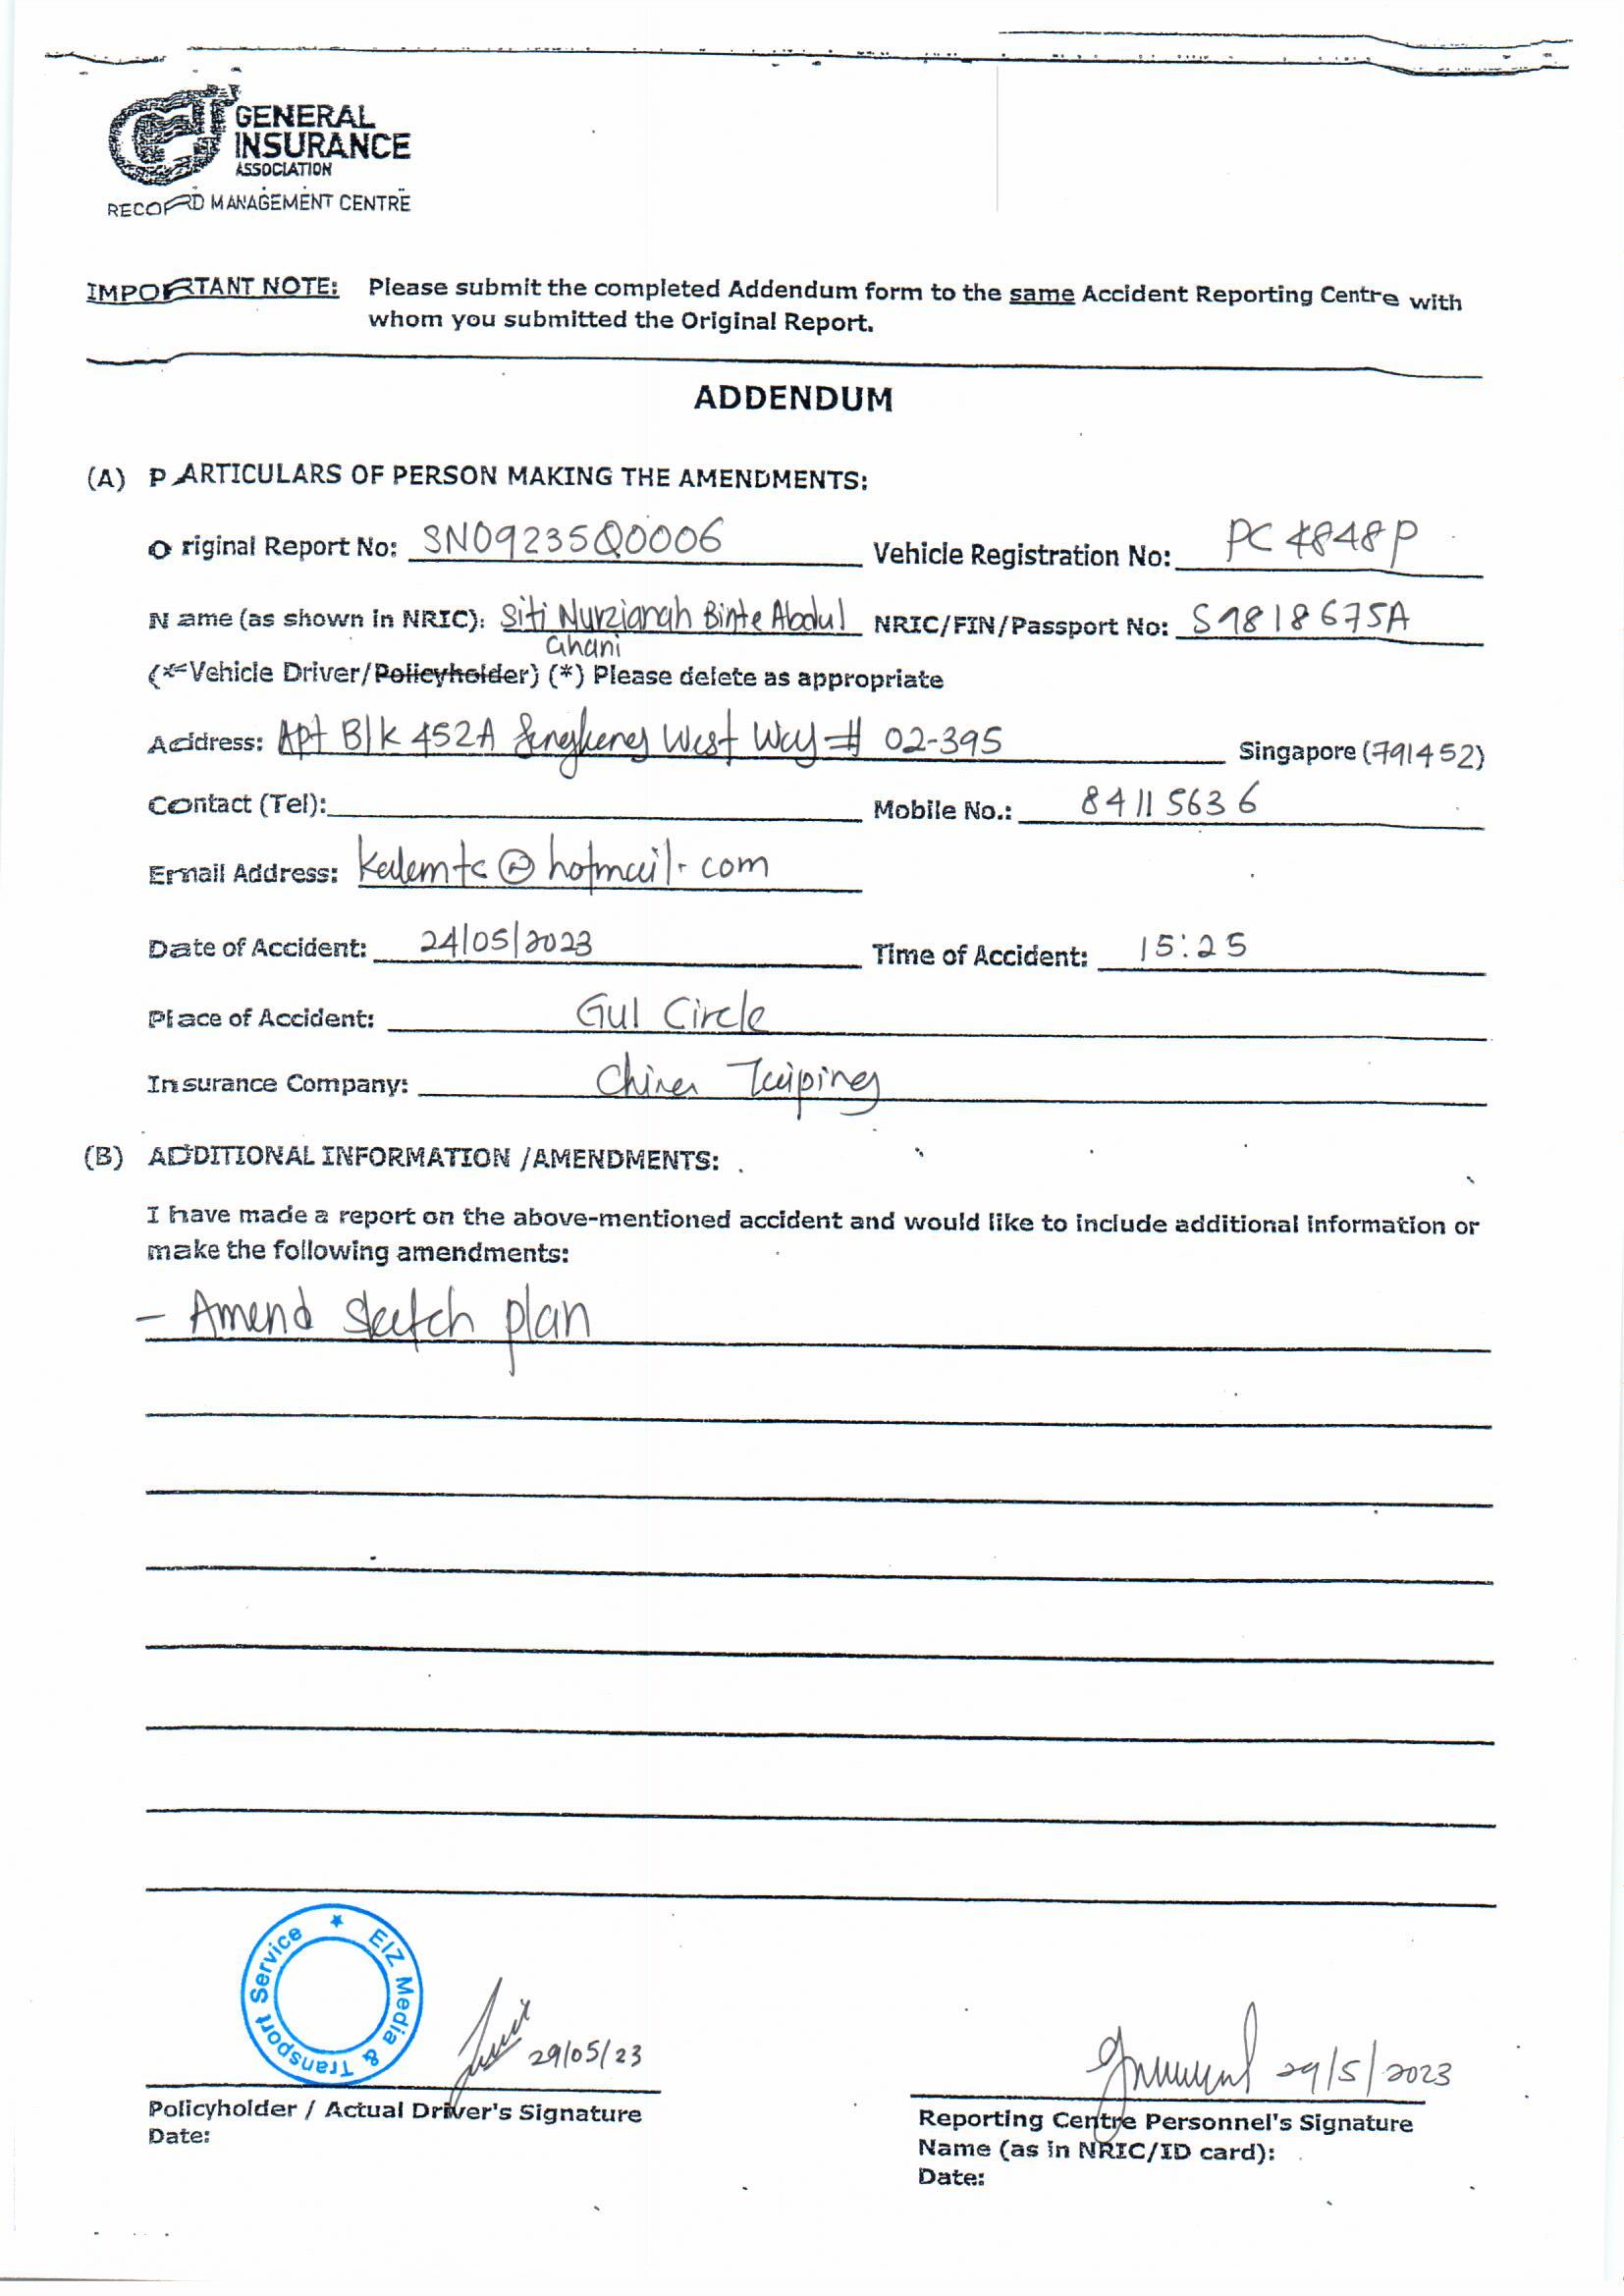 GENERAL
INSURANCE
ASSOCIATION
RECORD MANAGEMENT CENTRE
IMPORTANT NOTE: Please submit the completed Addendum form to the same Accident Reporting Centre with
whom you submitted the Original Report.
ADDENDUM
(A) PARTICULARS OF PERSON MAKING THE AMENDMENTS:
Original Report No: SN09235Q0006 Vehicle Registration No: PC4848P
Name (as shown in NRIC): Siti Nurzianah Binte Abdul NRIC/FIN/Passport No: S9818675A
Ghani
(*Vehicle Driver/Policyholder) (*) Please delete as appropriate
Address: Apt Blk 452A Sengkang West Way # 02-395 Singapore (791452)
Contact (Tel): Mobile No.: 84115636
Email Address: @hotmail.com
Date of Accident: 24/05/2023 Time of Accident: 15:25
Place of Accident: Gul Circle
Insurance Company: China Taiping
(B) ADDITIONAL INFORMATION /AMENDMENTS:
I have made a report on the above-mentioned accident and would like to include additional information or
make the following amendments:
- Amend sketch plan
EIZ Media & Transport Service
29/05/23
29/5/2023
Policyholder / Actual Driver's Signature
Date:
Reporting Centre Personnel's Signature
Name (as in NRIC/ID card):
Date: